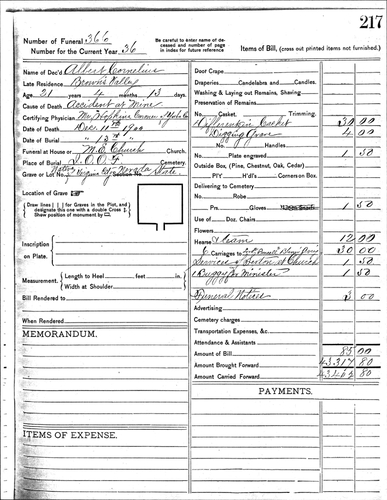 217
Number of Funeral 366
Number for the Current Year 36
Be carefully to enter name of deceased and number of page in index for future reference
Items of Bill, (cross out printed items not furnished.)
Name of Dec'd Albert Cornelius
Late Residence Browns Valley
Age 21 years 4 months 13 days
Cause of Death Accident at Mine
Certifying Physician Mr Hopkins Coroner
Date of Death Dec 11th 1900
Date of Burial " 13th "
Funeral at House or M.E. Church Church.
Place of Burial I.O.O.F. Cemetery.
Grave or Lot No. Native Virginia City Nevada State.
Location of Grave
Draw lines for Graves to the Plat, and designate this one with a double Cross
Show position of monument by
Inscription on Plate.
Measurement. Length to Heel feet in.
Width at Shoulder
Bill Rendered to
When Rendered
MEMORANDUM.
ITEMS OF EXPENSE.
Door Crape
Draperies, Candelabras and Candles.
Washing & Laying out Remains, Shaving
Preservation of Remains
No. Casket, Trimming.
Casket 30 00
Digging Grave 4 00
No. Handles
Plate engraved 1 50
Outside Box, (Pine, Chestnut, Oak, Cedar)
P'I'Y H'd's Corners on Box.
Delivering to Cemetery
No. Robe
Prs. Gloves 1 50
Use of Doz. Chair
Flowers
Hearse & team 12 00
6 Carriages to 30 00
Services of Sexton at Church 1 50
1 Buggy for Minister 1 50
Funeral Notices 3 00
Advertising
Cemetery charges
Transportation Expenses, &c.
Attendance & Assistants
Amount of Bill 85 00
Amount Brought Forward 43317 80
Amount Carried Forward 43402 80
PAYMENTS.